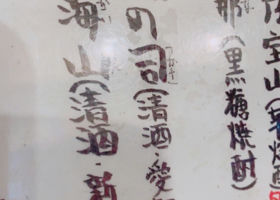 宝山(芋焼
那(黒糖焼酎)
の司(清酒・愛
海山(清酒・新